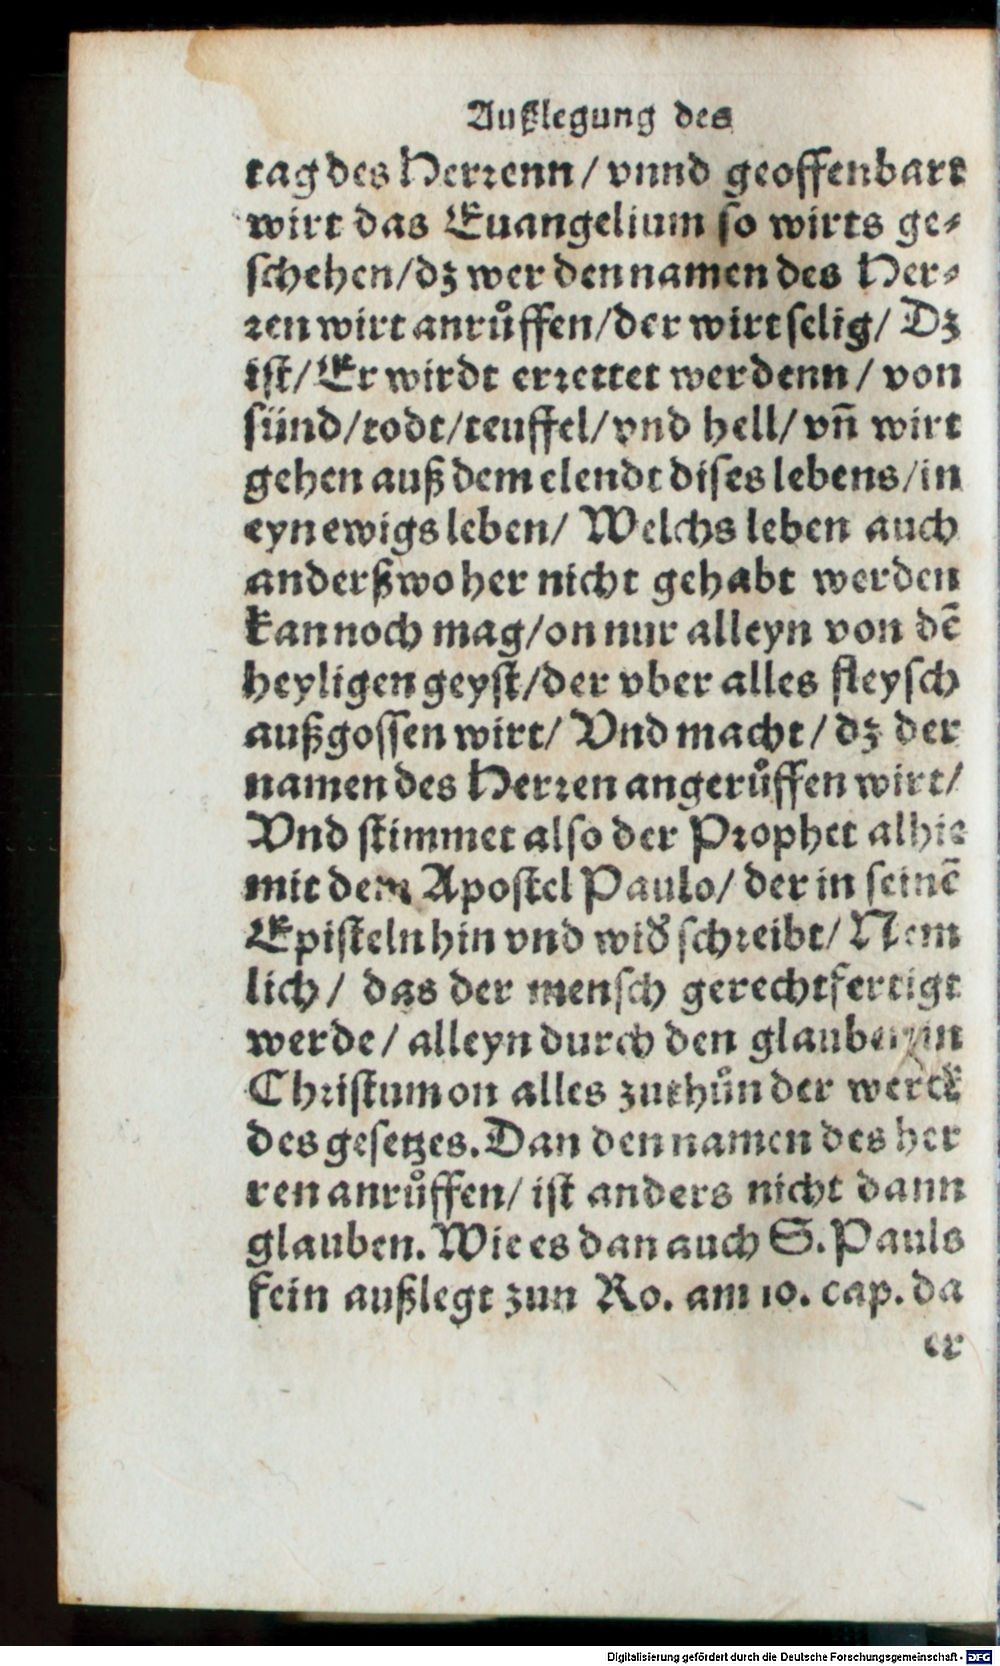 Außlegung des
tag des Herrenn / vnnd geoffenbart
wirt das Euangelium so wirts ge⸗
schehen / dz wer den namen des Her⸗
ren wirt anruͦffen / der wirt selig / Dz
ist / Er wirdt errettet werdenn / von
sünd / todt / teuffel / vnd hell / vñ wirt
gehen auß dem elendt dises lebens / in
eyn ewigs leben / Welchs leben auch
anderßwo her nicht gehabt werden
kan noch mag / on nur alleyn von dē
heyligen geyst / der vber alles fleysch
außgossen wirt / Vnd macht / dz der
namen des Herren angeruͦffen wirt /
Vnd stimmet also der Prophet alhie
mit dem Apostel Paulo / der in seinē
Episteln hin vnd wid̕ schreibt / Nem
lich / das der mensch gerechtfertigt
werde / alleyn durch den glauben in
Christum on alles zuthuͦn der werck
des gesetzes. Dan den namen des her
ren anruͦffen / ist anders nicht dann
glauben. Wie es dan auch S. Pauls
fein außlegt zun Ro. am 10. cap. da
er
Digitalisierung gefördert durch die Deutsche Forschungsgemeinschaft - DFG